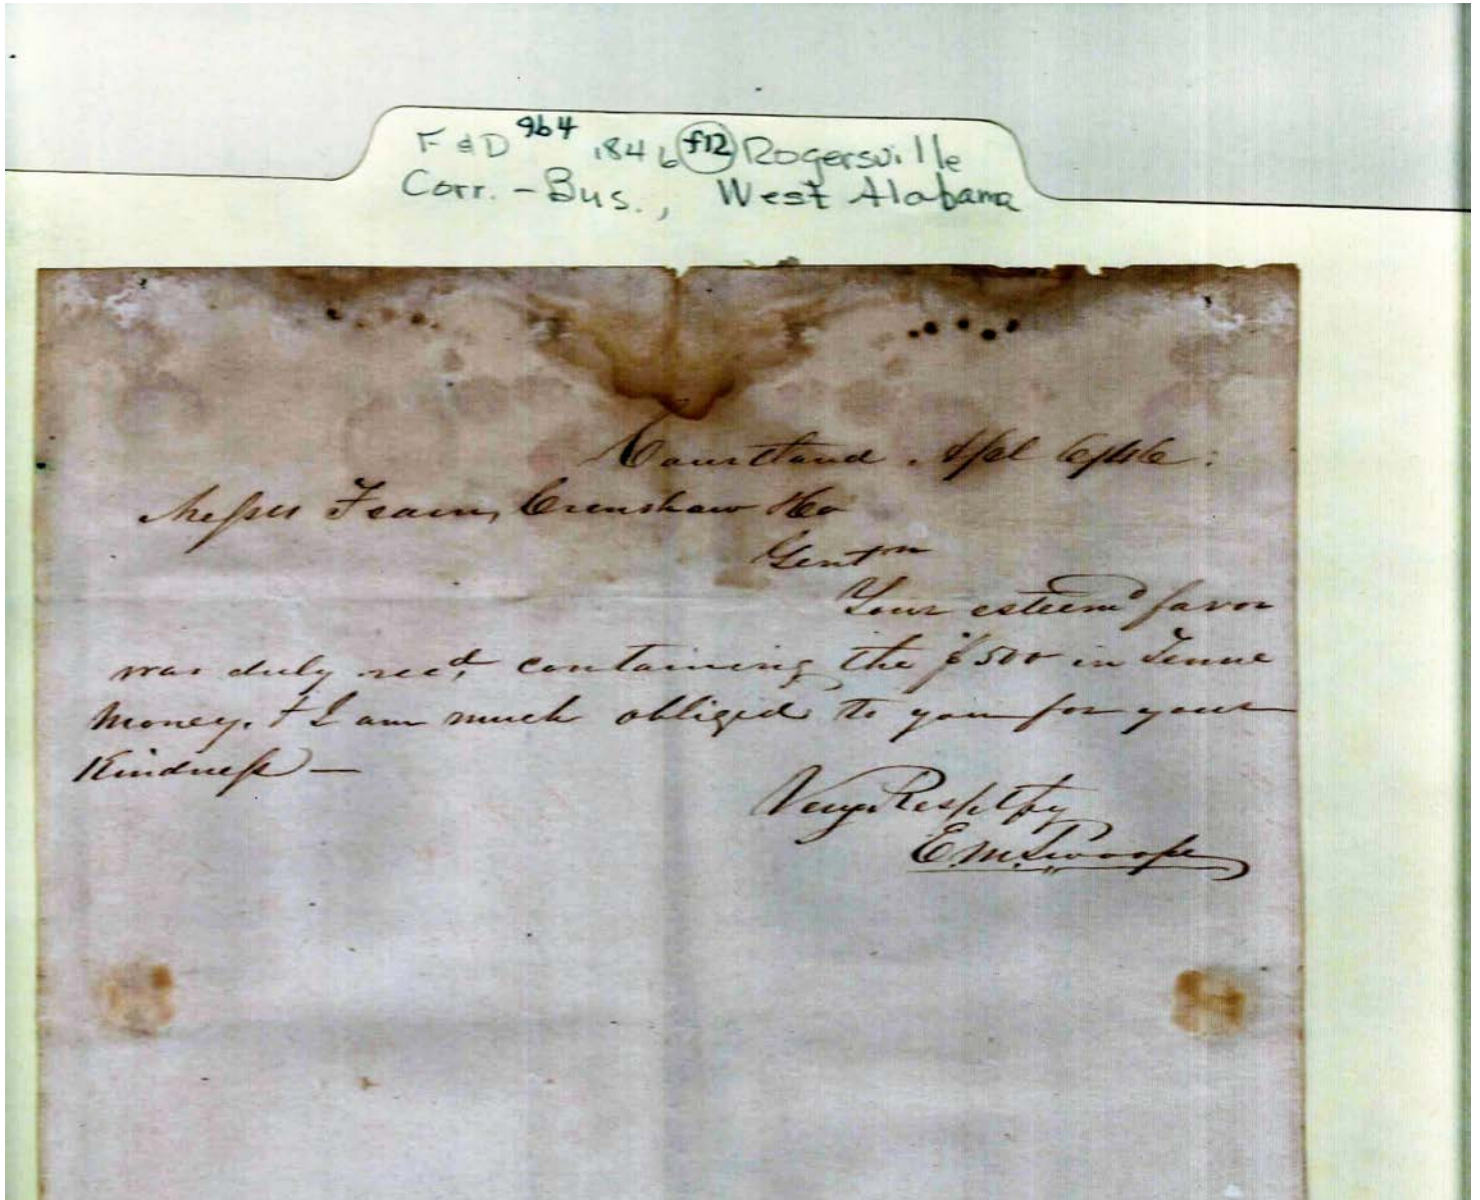 F & D 9b4 1846 f12 Rogersville
Corr. - Bus., West Alabama
Courtland Apl 6/46:
Messrs Fearn, Crenshaw & Co
Gentmn
Your esteemd favor
was duly recd, containing the $500 in Tenne
Money. & I am much obliged to you for your
Kindness —
Very Resptfy
E. M. Swoope